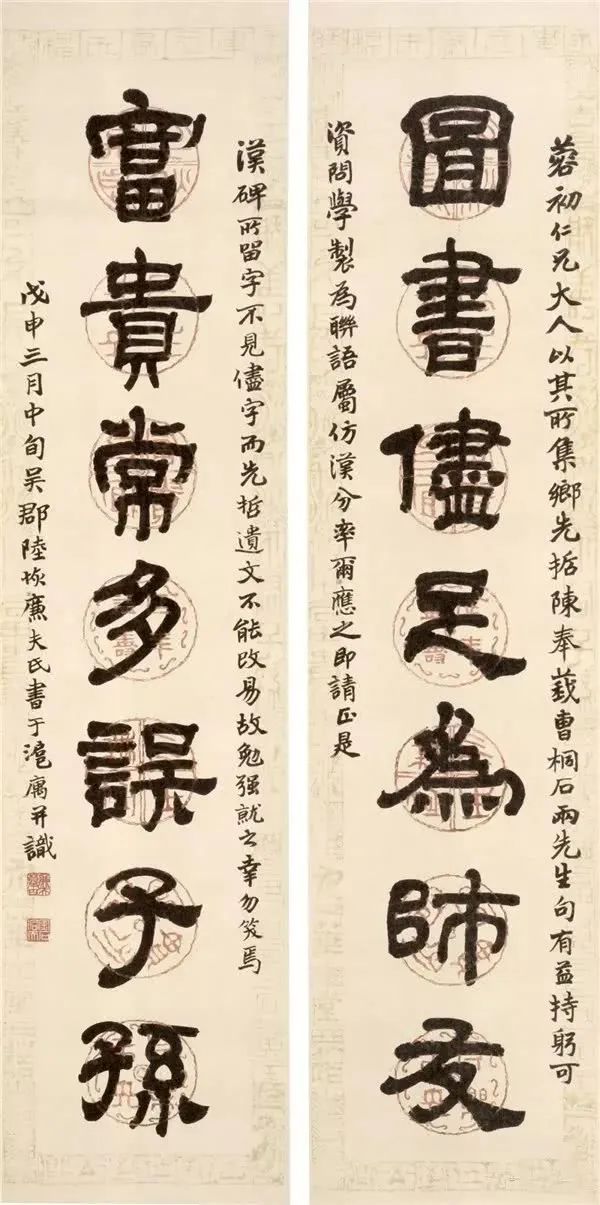 蓉初仁兄大人以其所集鄉先哲陳奉莪曹桐石兩先生句有益持躬可
圖書儘足為師友
資問學製為聯語屬仿漢分率爾應之即請正是
漢碑所留字不見儘字而先哲遺文不能改易故勉强就之幸勿笑焉
富貴常多誤子孫
戊申三月中旬吳郡陸恢廉夫氏書于滬寓并識